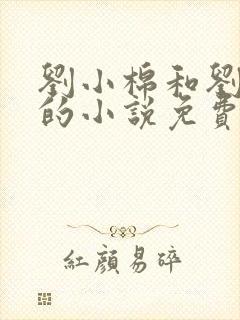 劉小棉和劉
的小說免費
紅顏易碎